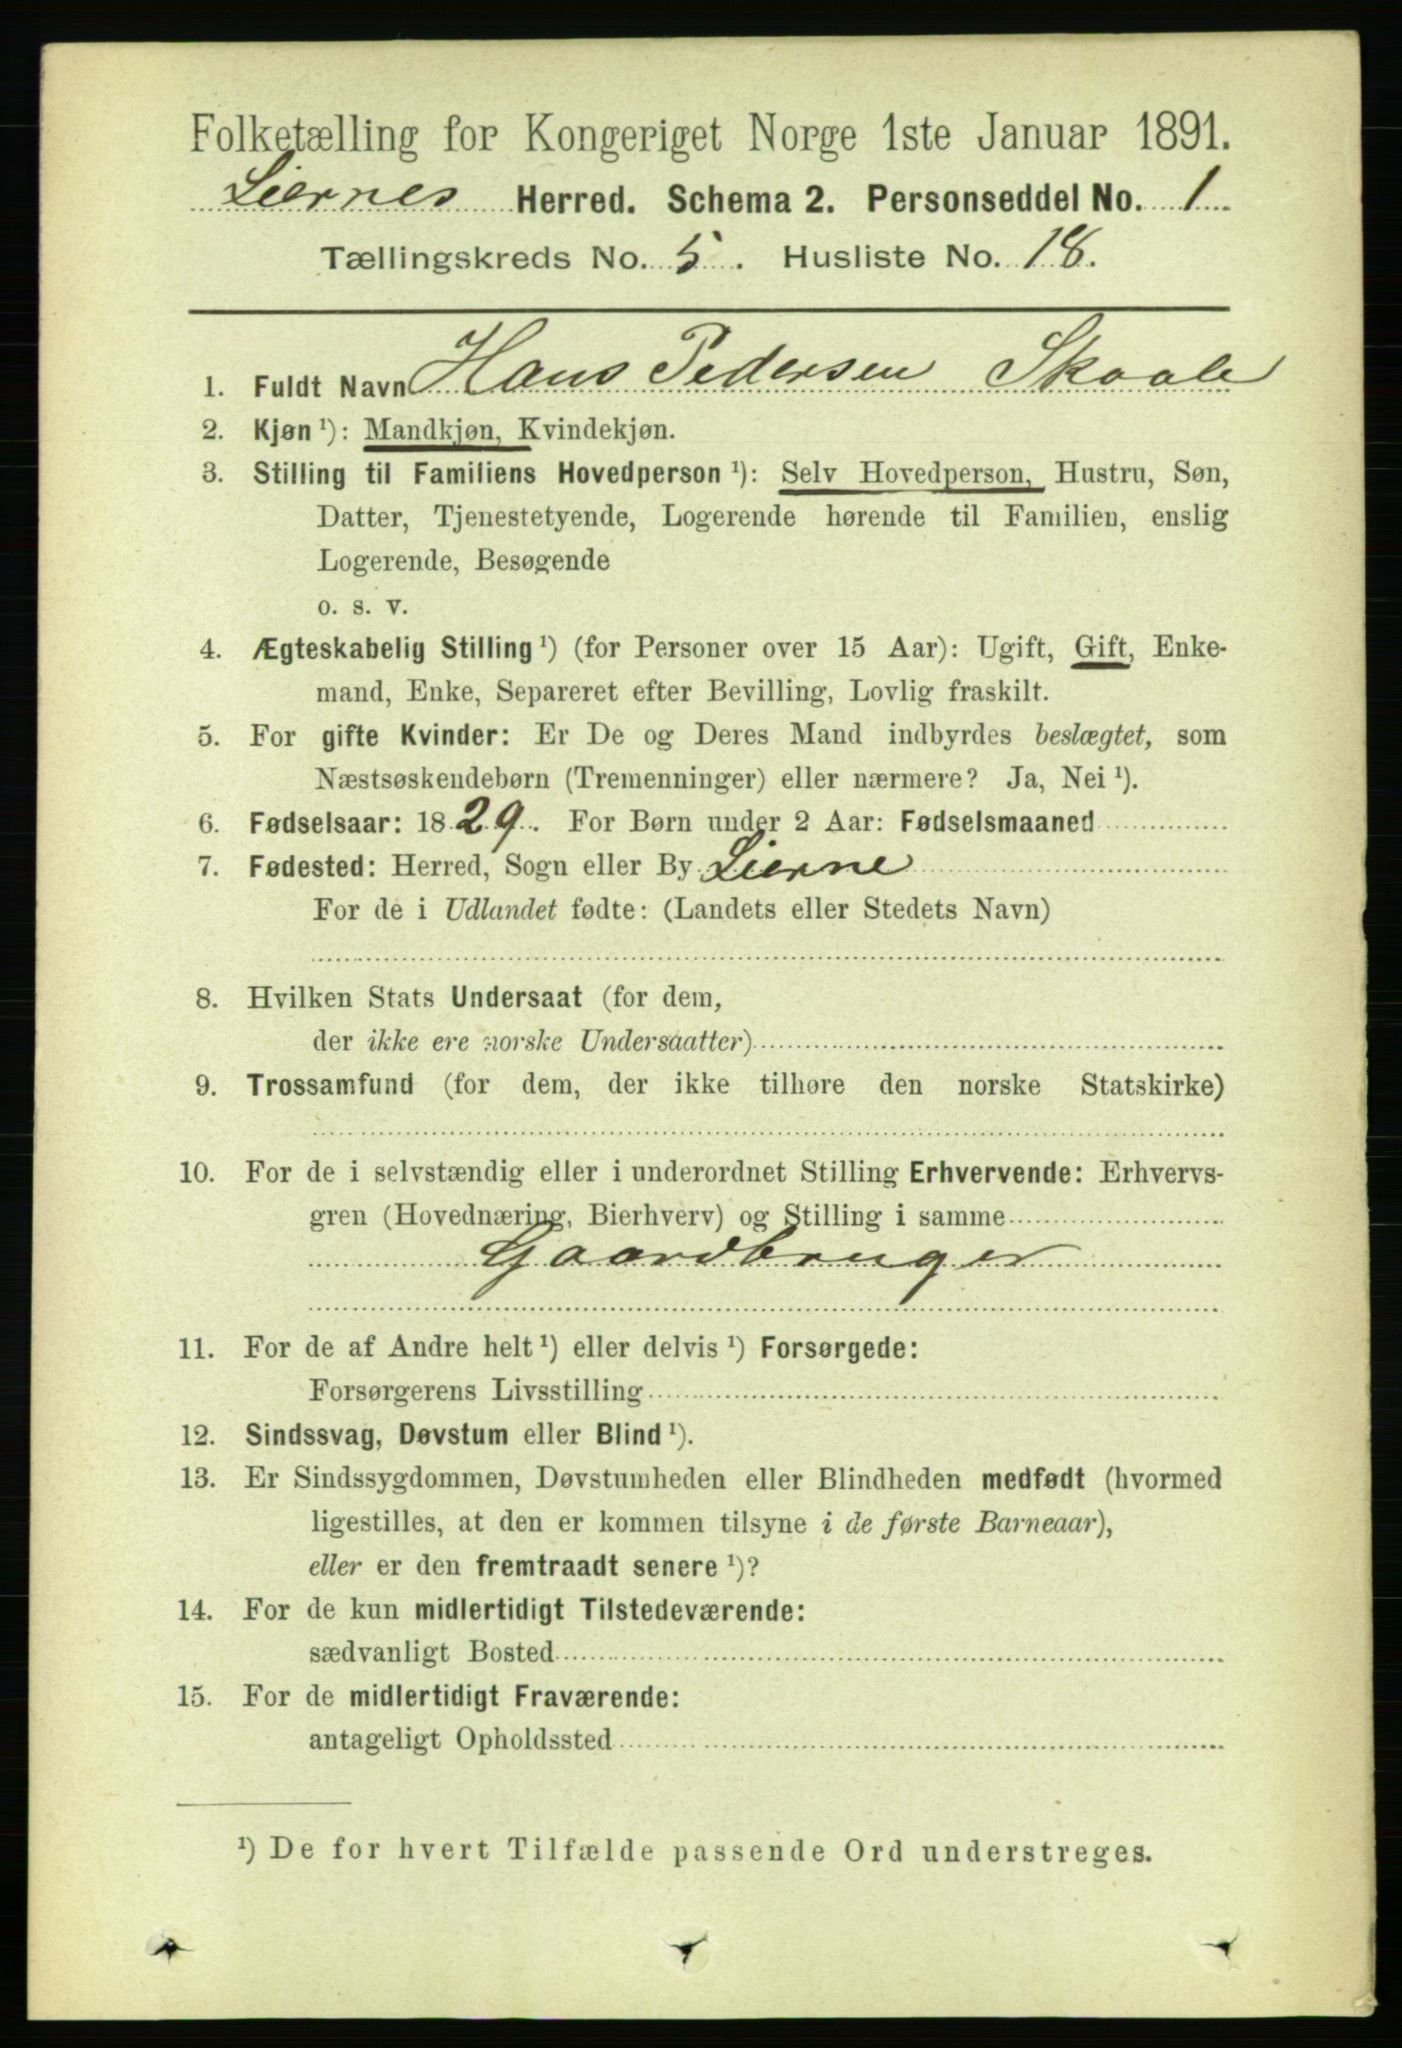 Folketælling for Kongeriget Norge 1ste Januar 1891.
Liernes Herred. Schema 2. Personseddel No. 1
Tællingskreds No. 5. Husliste No. 18.
1. Fuldt Navn Hans Pedersen Skaale
2. Kjøn ¹): Mandkjøn, Kvindekjøn.
3. Stilling til Familiens Hovedperson ¹): Selv Hovedperson, Hustru, Søn,
Datter, Tjenestetyende, Logerende hørende til Familien, enslig
Logerende, Besøgende
o. s. v.
4. Ægteskabelig Stilling ¹) (for Personer over 15 Aar): Ugift, Gift, Enke-
mand, Enke, Separeret efter Bevilling, Lovlig fraskilt.
5. For gifte Kvinder: Er De og Deres Mand indbyrdes beslægtet, som
Næstsøskendebørn (Tremenninger) eller nærmere? Ja, Nei ¹).
6. Fødselsaar: 1829. For Børn under 2 Aar: Fødselsmaaned
7. Fødested: Herred, Sogn eller By Lierne
For de i Udlandet fødte: (Landets eller Stedets Navn)
8. Hvilken Stats Undersaat (for dem,
der ikke ere norske Undersaatter)
9. Trossamfund (for dem, der ikke tilhøre den norske Statskirke)
10. For de i selvstændig eller i underordnet Stilling Erhvervende: Erhvervs-
gren (Hovednæring, Bierhverv) og Stilling i samme
Gaardbruger
11. For de af Andre helt ¹) eller delvis ¹) Forsørgede:
Forsørgerens Livsstilling
12. Sindssvag, Døvstum eller Blind ¹).
13. Er Sindssygdommen, Døvstumheden eller Blindheden medfødt (hvormed
ligestilles, at den er kommen tilsyne i de første Barneaar),
eller er den fremtraadt senere ¹)?
14. For de kun midlertidigt Tilstedeværende:
sædvanligt Bosted
15. For de midlertidigt Fraværende:
antageligt Opholdssted
¹) De for hvert Tilfælde passende Ord understreges.